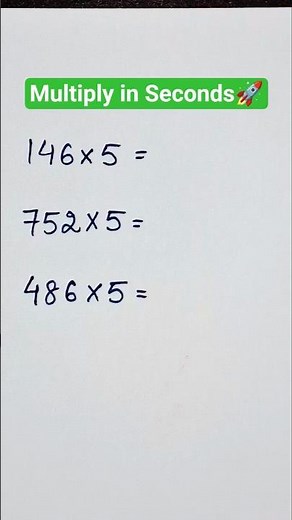 Multiply in Seconds🚀
146×5 =
752×5=
486×5=